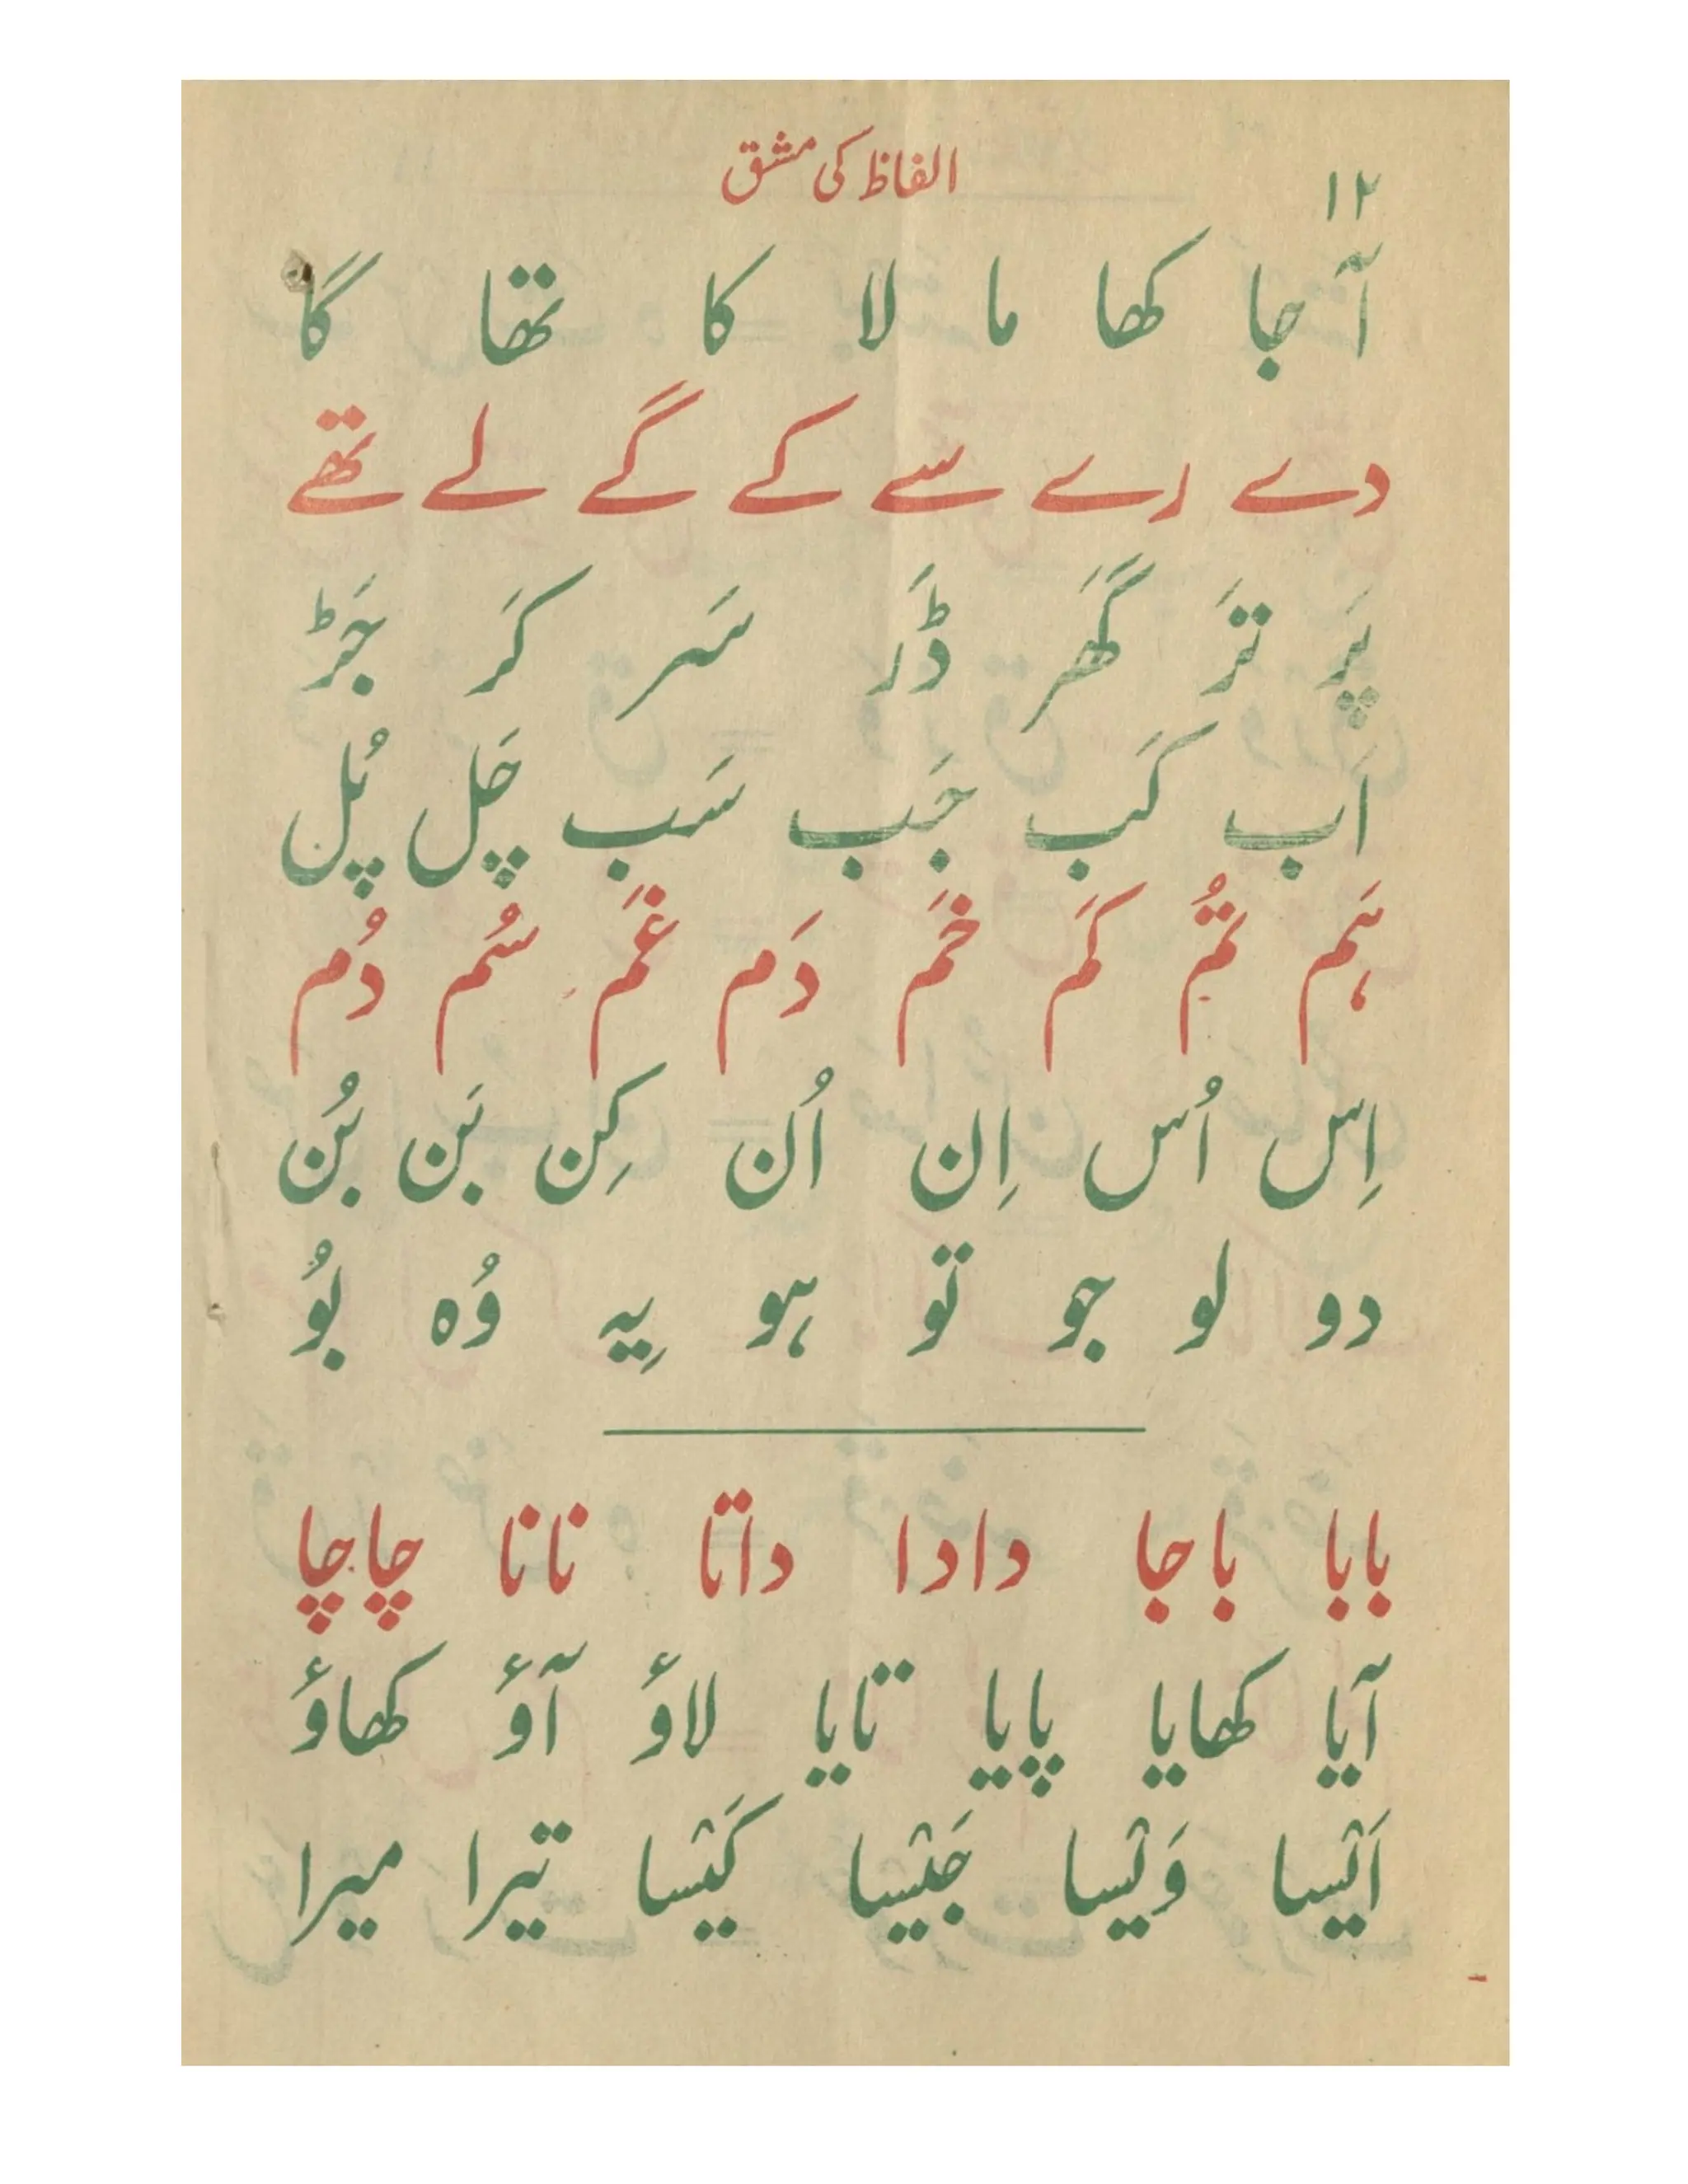 ۱۲
الفاظ کی مشق
آ جا کھا ما لا کا تھا گا
دے رے سے کے گے لے تھے
پَر تَر گَھر ڈَر سَر کَر جَڑ
اَب کَب جَب سَب چَل پُل
ہَم تُم کَم خَم دَم غَم سُم دُم
اِس اُس اِن اُن کِن بَن بُن
دو لو جو تو ہو یِہ وُہ بُو
بابا باجا دادا داتا نانا چاچا
آیا کھایا پایا تایا لاؤ آؤ کھاؤ
اَیسا وَیسا جَیسا کَیسا تیرا میرا